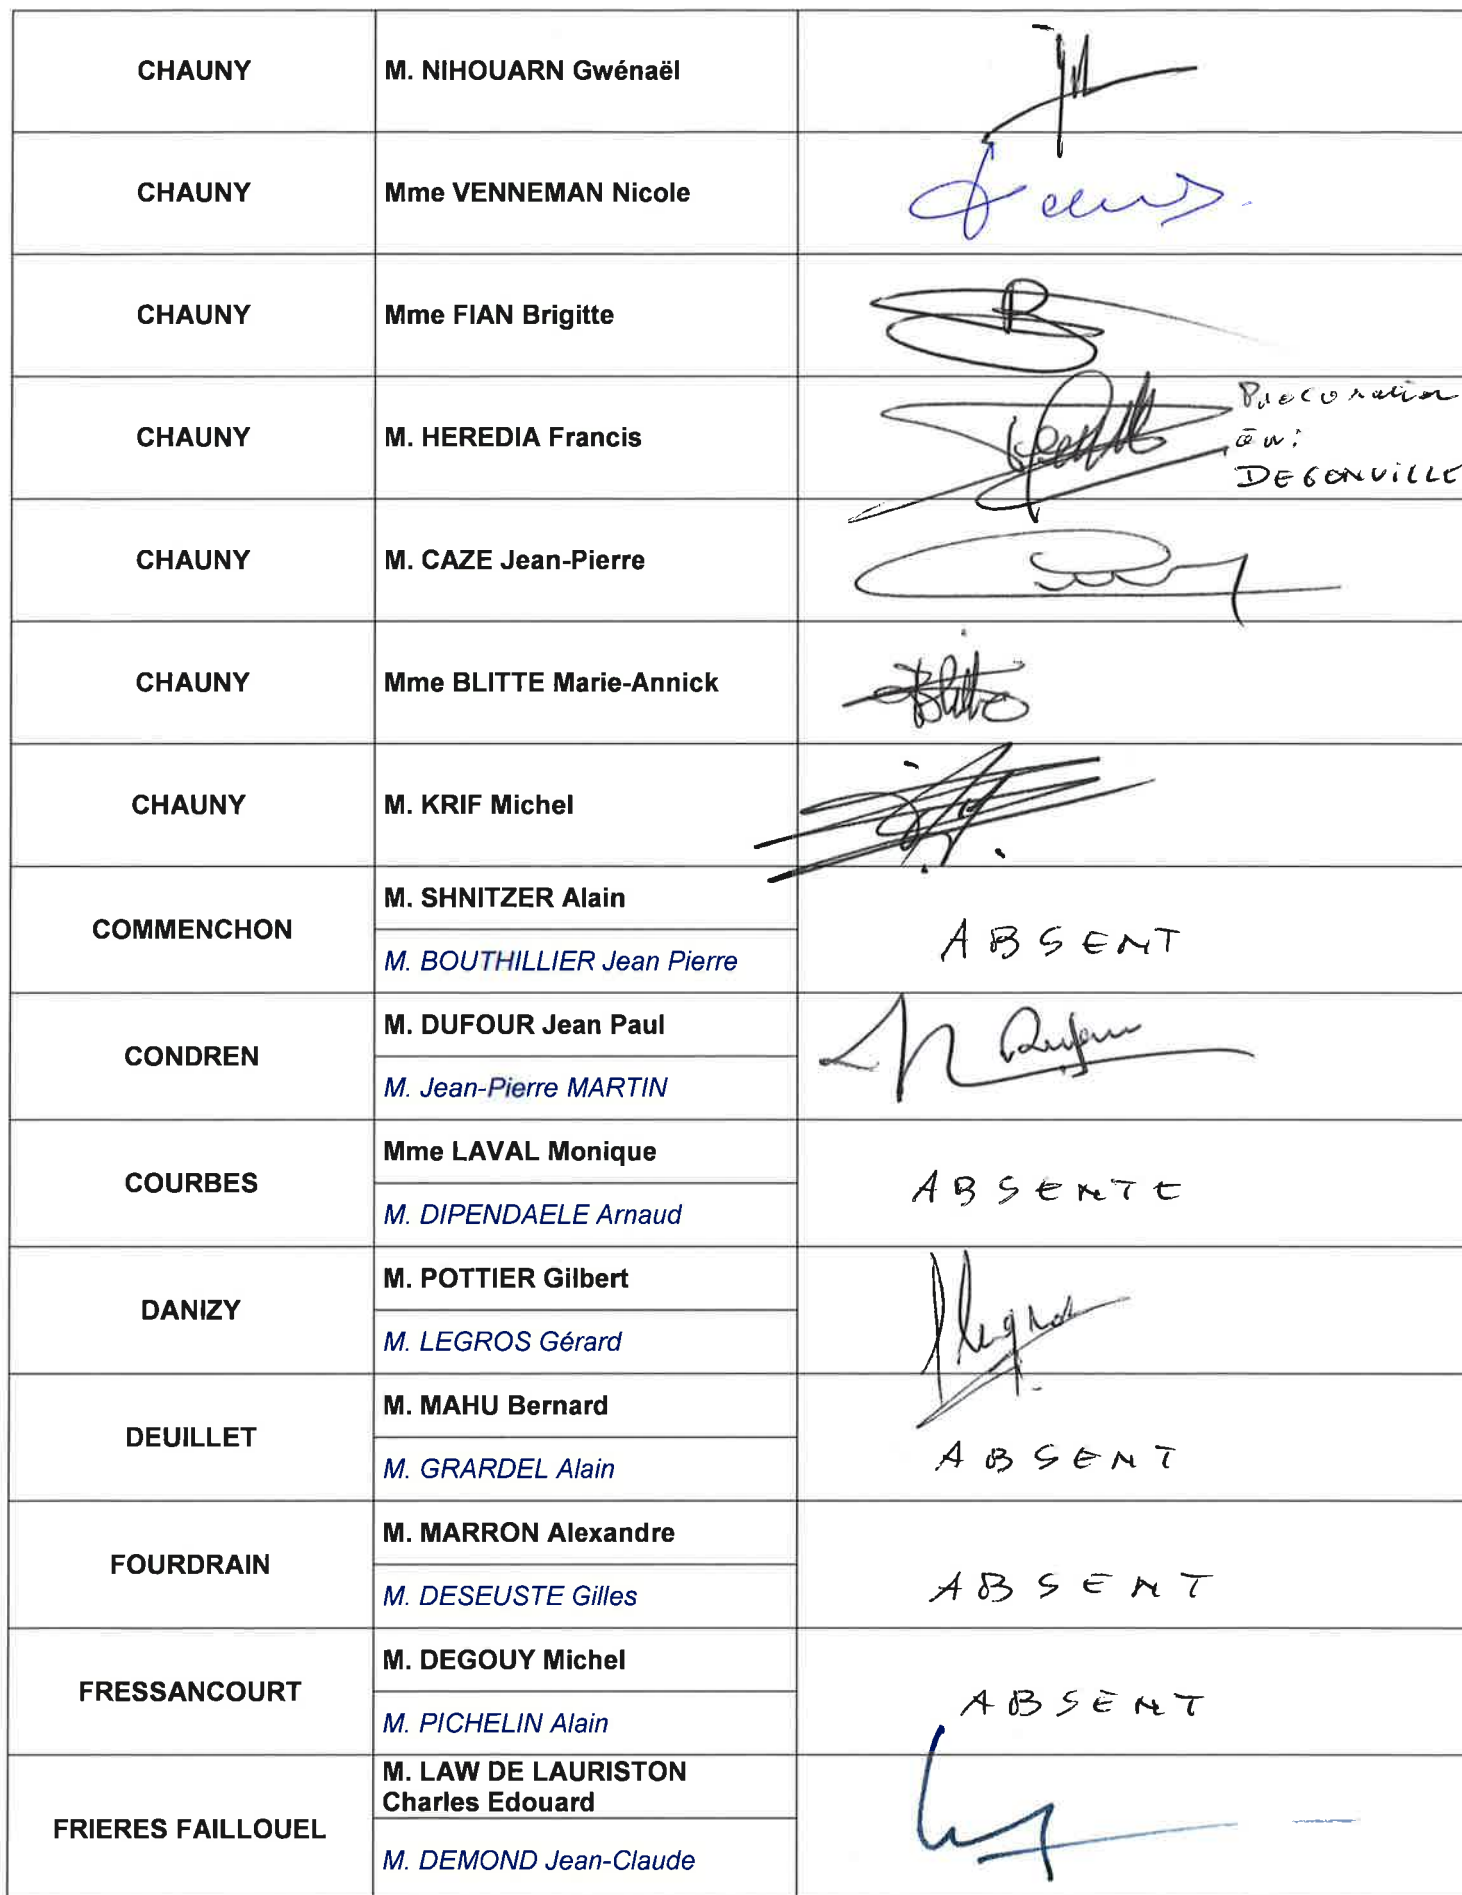 CHAUNY M. NIHOUARN Gwénaël
CHAUNY Mme VENNEMAN Nicole
CHAUNY Mme FIAN Brigitte
CHAUNY M. HEREDIA Francis
DEGONVILLE
CHAUNY M. CAZE Jean-Pierre
CHAUNY Mme BLITTE Marie-Annick
Blitte
CHAUNY M. KRIF Michel
COMMENCHON
M. SHNITZER Alain
M. BOUTHILLIER Jean Pierre
ABSENT
CONDREN
M. DUFOUR Jean Paul
M. Jean-Pierre MARTIN
Dufour
COURBES
Mme LAVAL Monique
M. DIPENDAELE Arnaud
ABSENTE
DANIZY
M. POTTIER Gilbert
M. LEGROS Gérard
Legros
DEUILLET
M. MAHU Bernard
M. GRARDEL Alain
ABSENT
FOURDRAIN
M. MARRON Alexandre
M. DESEUSTE Gilles
ABSENT
FRESSANCOURT
M. DEGOUY Michel
M. PICHELIN Alain
ABSENT
FRIERES FAILLOUEL
M. LAW DE LAURISTON
Charles Edouard
M. DEMOND Jean-Claude